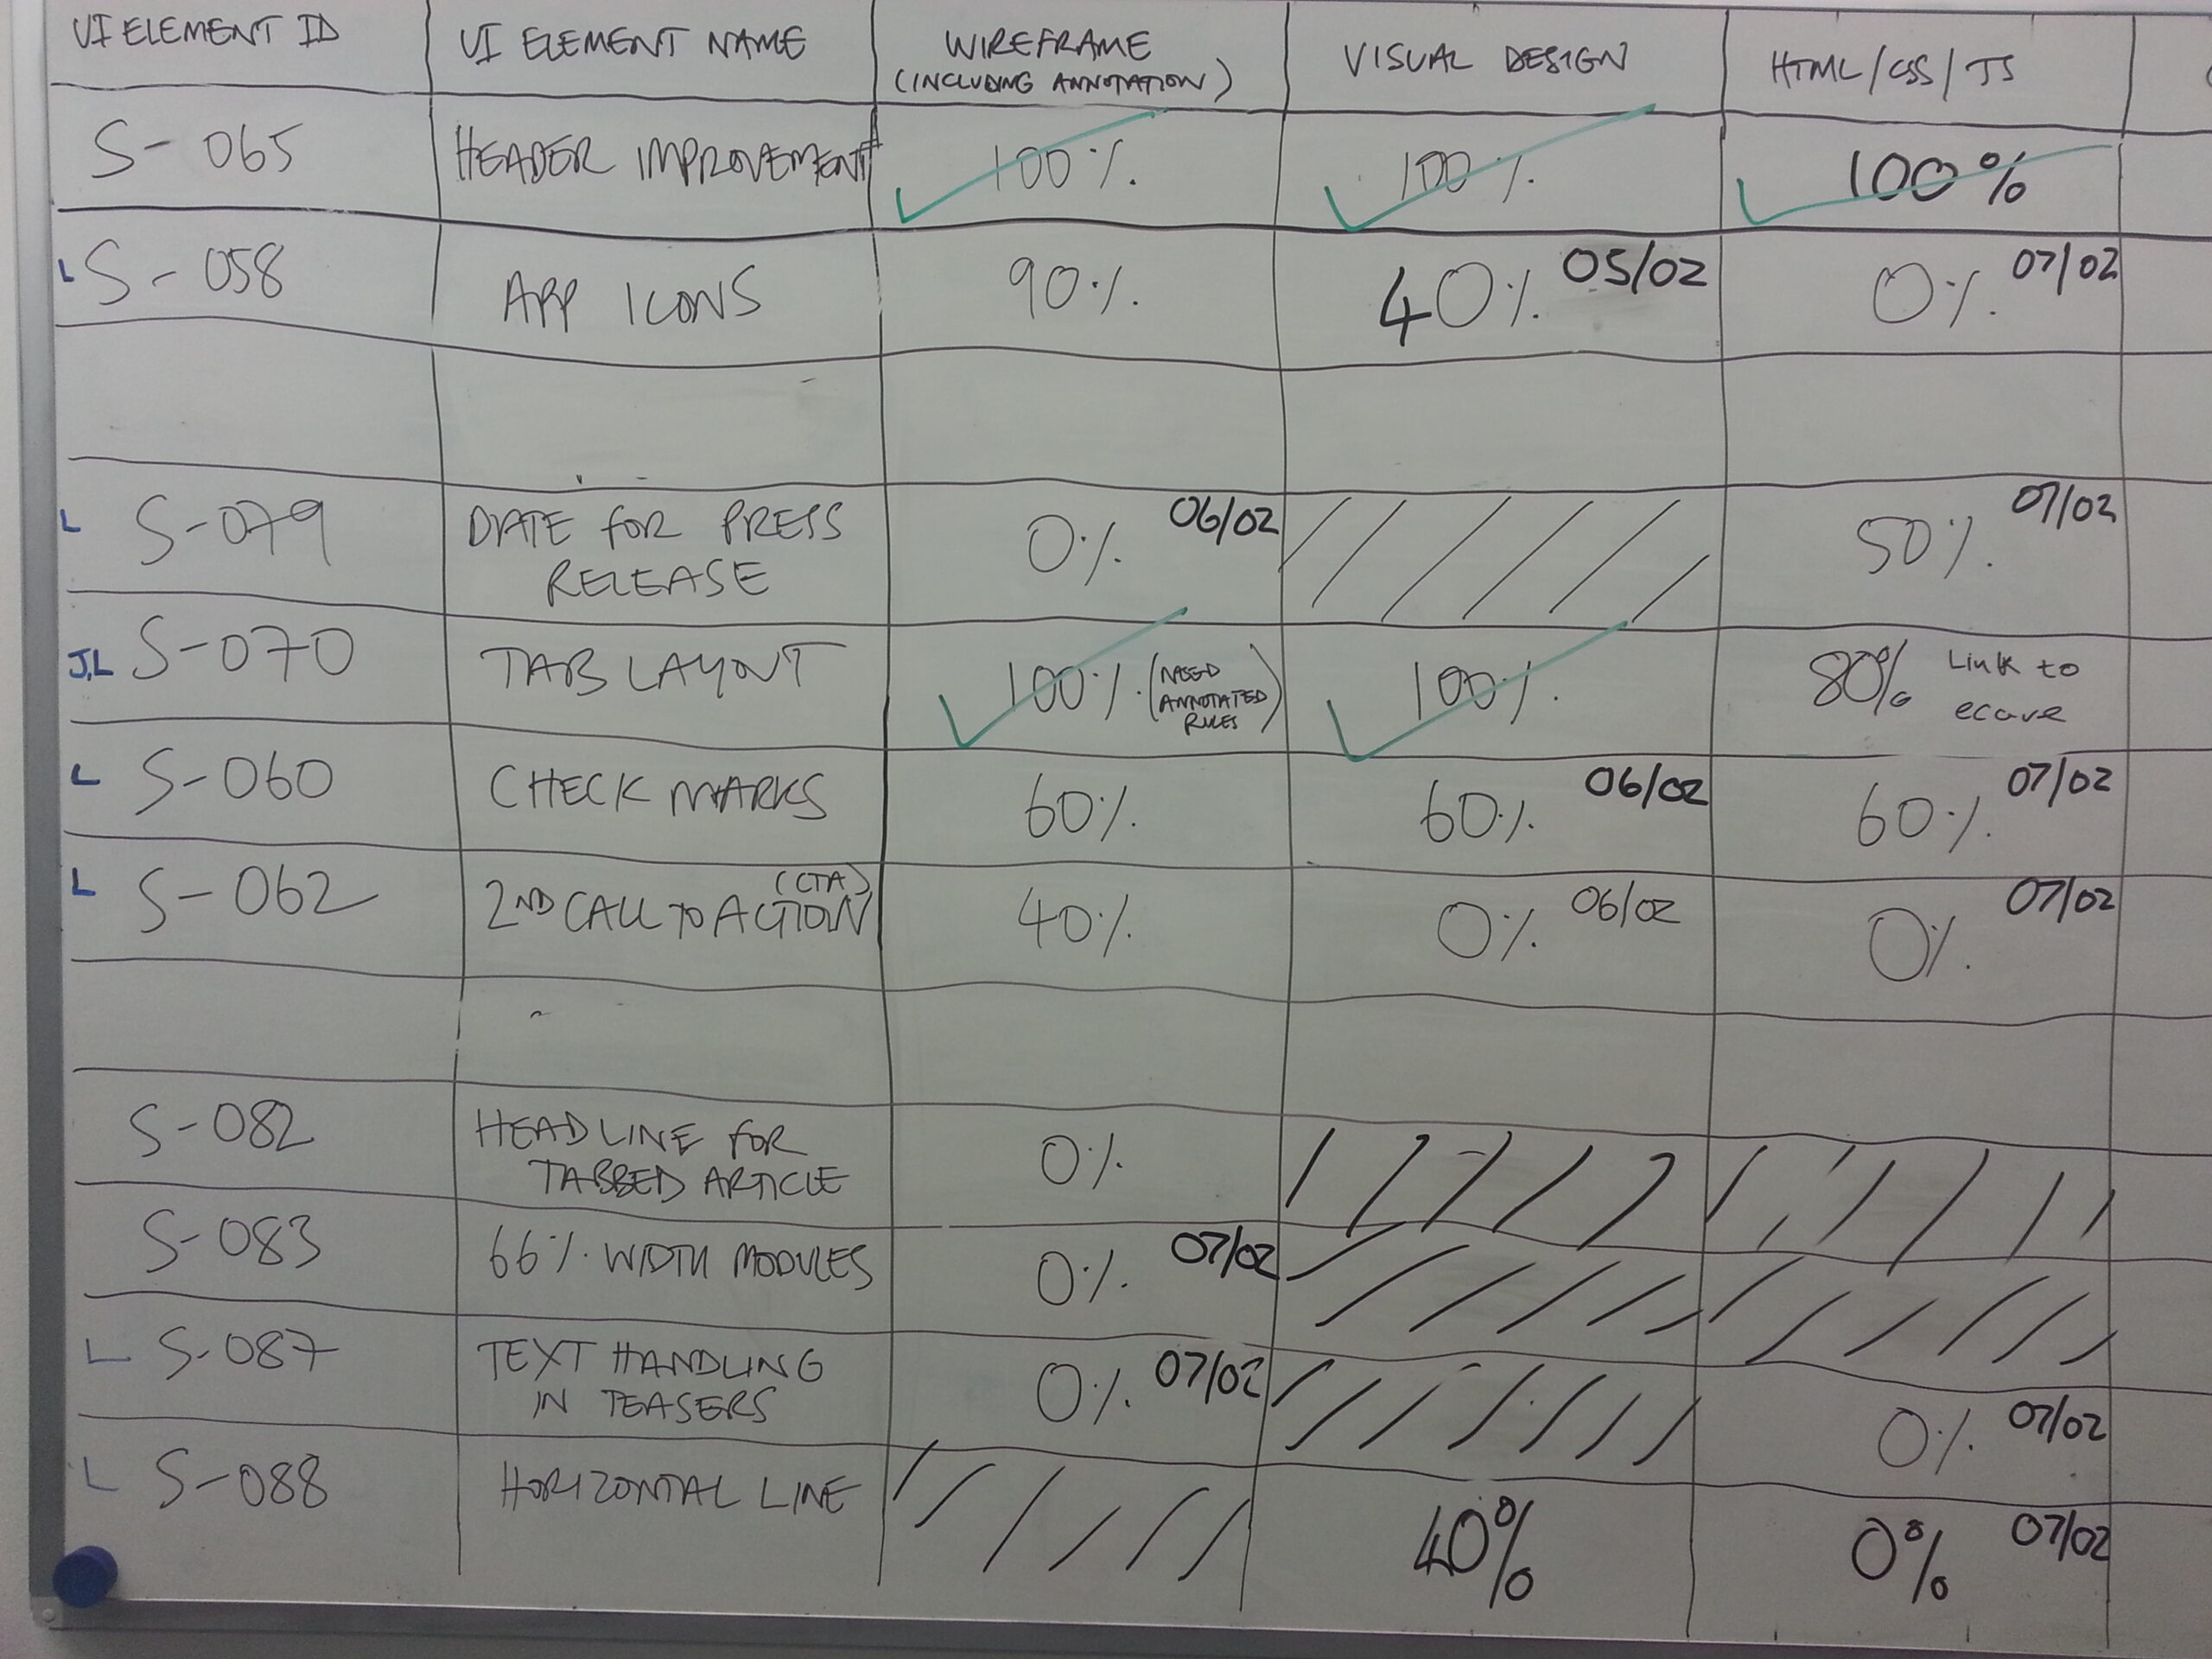 UI ELEMENT ID
UI ELEMENT NAME
WIREFRAME
(INCLUDING ANNOTATION)
VISUAL DESIGN
HTML/CSS/JS
S-065
HEADER IMPROVEMENT
100%
100%
100%
L S-058
APP ICONS
90%
40% 05/02
0% 07/02
L S-079
DATE FOR PRESS
RELEASE
0% 06/02
50% 07/02
J,L S-070
TAB LAYOUT
100% (NEED
ANNOTATED
RULES)
100%
80% Link to
L S-060
CHECK MARKS
60%
60% 06/02
60% 07/02
L S-062
2ND CALL TO ACTION (CTA)
40%
0% 06/02
0% 07/02
S-082
HEADLINE FOR
TABBED ARTICLE
0%
S-083
66% WIDTH MODULES
0% 07/02
L S-087
TEXT HANDLING
IN TEASERS
0% 07/02
0% 07/02
L S-088
HORIZONTAL LINE
40%
0% 07/02